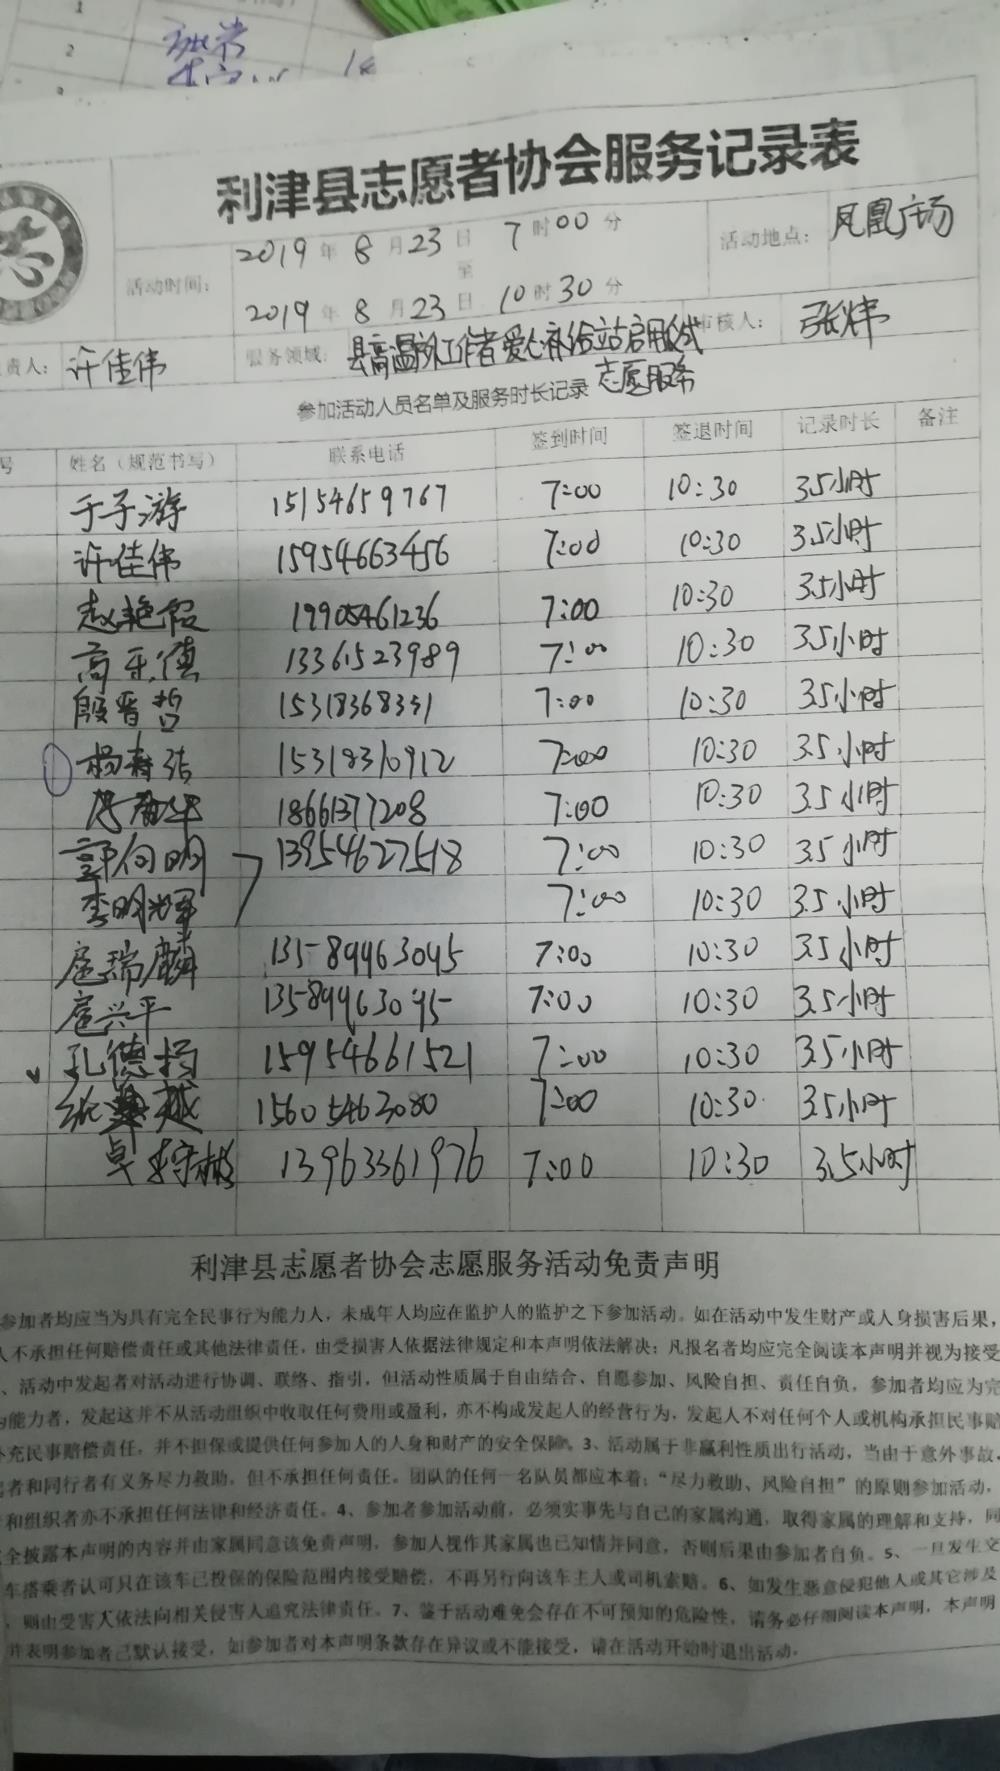 2
利津县志愿者协会服务记录表
活动时间:
2019年8月23日 7时00分
至
2019年8月23日 10时30分
活动地点: 凤凰广场
责人: 许佳伟
服务领域: 县高温户外工作者爱心补给站启用仪式
志愿服务
审核人: 张炜
参加活动人员名单及服务时长记录
号 姓名（规范书写） 联系电话 签到时间 签退时间 记录时长 备注
于子游 15154659767 7:00 10:30 3.5小时
许佳伟 15954663456 7:00 10:30 3.5小时
赵艳霞 19905461236 7:00 10:30 3.5小时
高乐镇 13361523989 7:00 10:30 3.5小时
殷晋哲 15318368331 7:00 10:30 3.5小时
杨春洁 15318310912 7:00 10:30 3.5小时
18661377208 7:00 10:30 3.5小时
郭向明 13954627518 7:00 10:30 3.5小时
李明辉 7:00 10:30 3.5小时
扈瑞麟 13589963045 7:00 10:30 3.5小时
扈兴平 13589963045 7:00 10:30 3.5小时
孔德扬 15954661521 7:00 10:30 3.5小时
张 越 15605463080 7:00 10:30 3.5小时
卓 彬 13963361976 7:00 10:30 3.5小时
利津县志愿者协会志愿服务活动免责声明
参加者均应当为具有完全民事行为能力人，未成年人均应在监护人的监护之下参加活动。如在活动中发生财产或人身损害后果，
人不承担任何赔偿责任或其他法律责任，由受损害人依据法律规定和本声明依法解决；凡报名者均应完全阅读本声明并视为接受
、活动中发起者对活动进行协调、联络、指引，但活动性质属于自由结合、自愿参加、风险自担、责任自负，参加者均应为完
为能力者，发起这并不从活动组织中收取任何费用或盈利，亦不构成发起人的经营行为，发起人不对任何个人或机构承担民事赔
补充民事赔偿责任，并不担保或提供任何参加人的人身和财产的安全保障。3、活动属于非赢利性质出行活动，当由于意外事故，
者和同行者有义务尽力救助，但不承担任何责任。团队的任何一名队员都应本着：“尽力救助、风险自担”的原则参加活动，
和组织者亦不承担任何法律和经济责任。4、参加者参加活动前，必须实事先与自己的家属沟通，取得家属的理解和支持，同
全披露本声明的内容并由家属同意该免责声明，参加人视作其家属也已知情并同意，否则后果由参加者自负。5、一旦发生交
车搭乘者认可只在该车已投保的保险范围内接受赔偿，不再另行向该车主人或司机索赔。6、如发生恶意侵犯他人或其它涉及
，则由受害人依法向相关侵害人追究法律责任。7、鉴于活动难免会存在不可预知的危险性，请务必仔细阅读本声明，本声明
并表明参加者已默认接受，如参加者对本声明条款存在异议或不能接受，请在活动开始时退出活动。